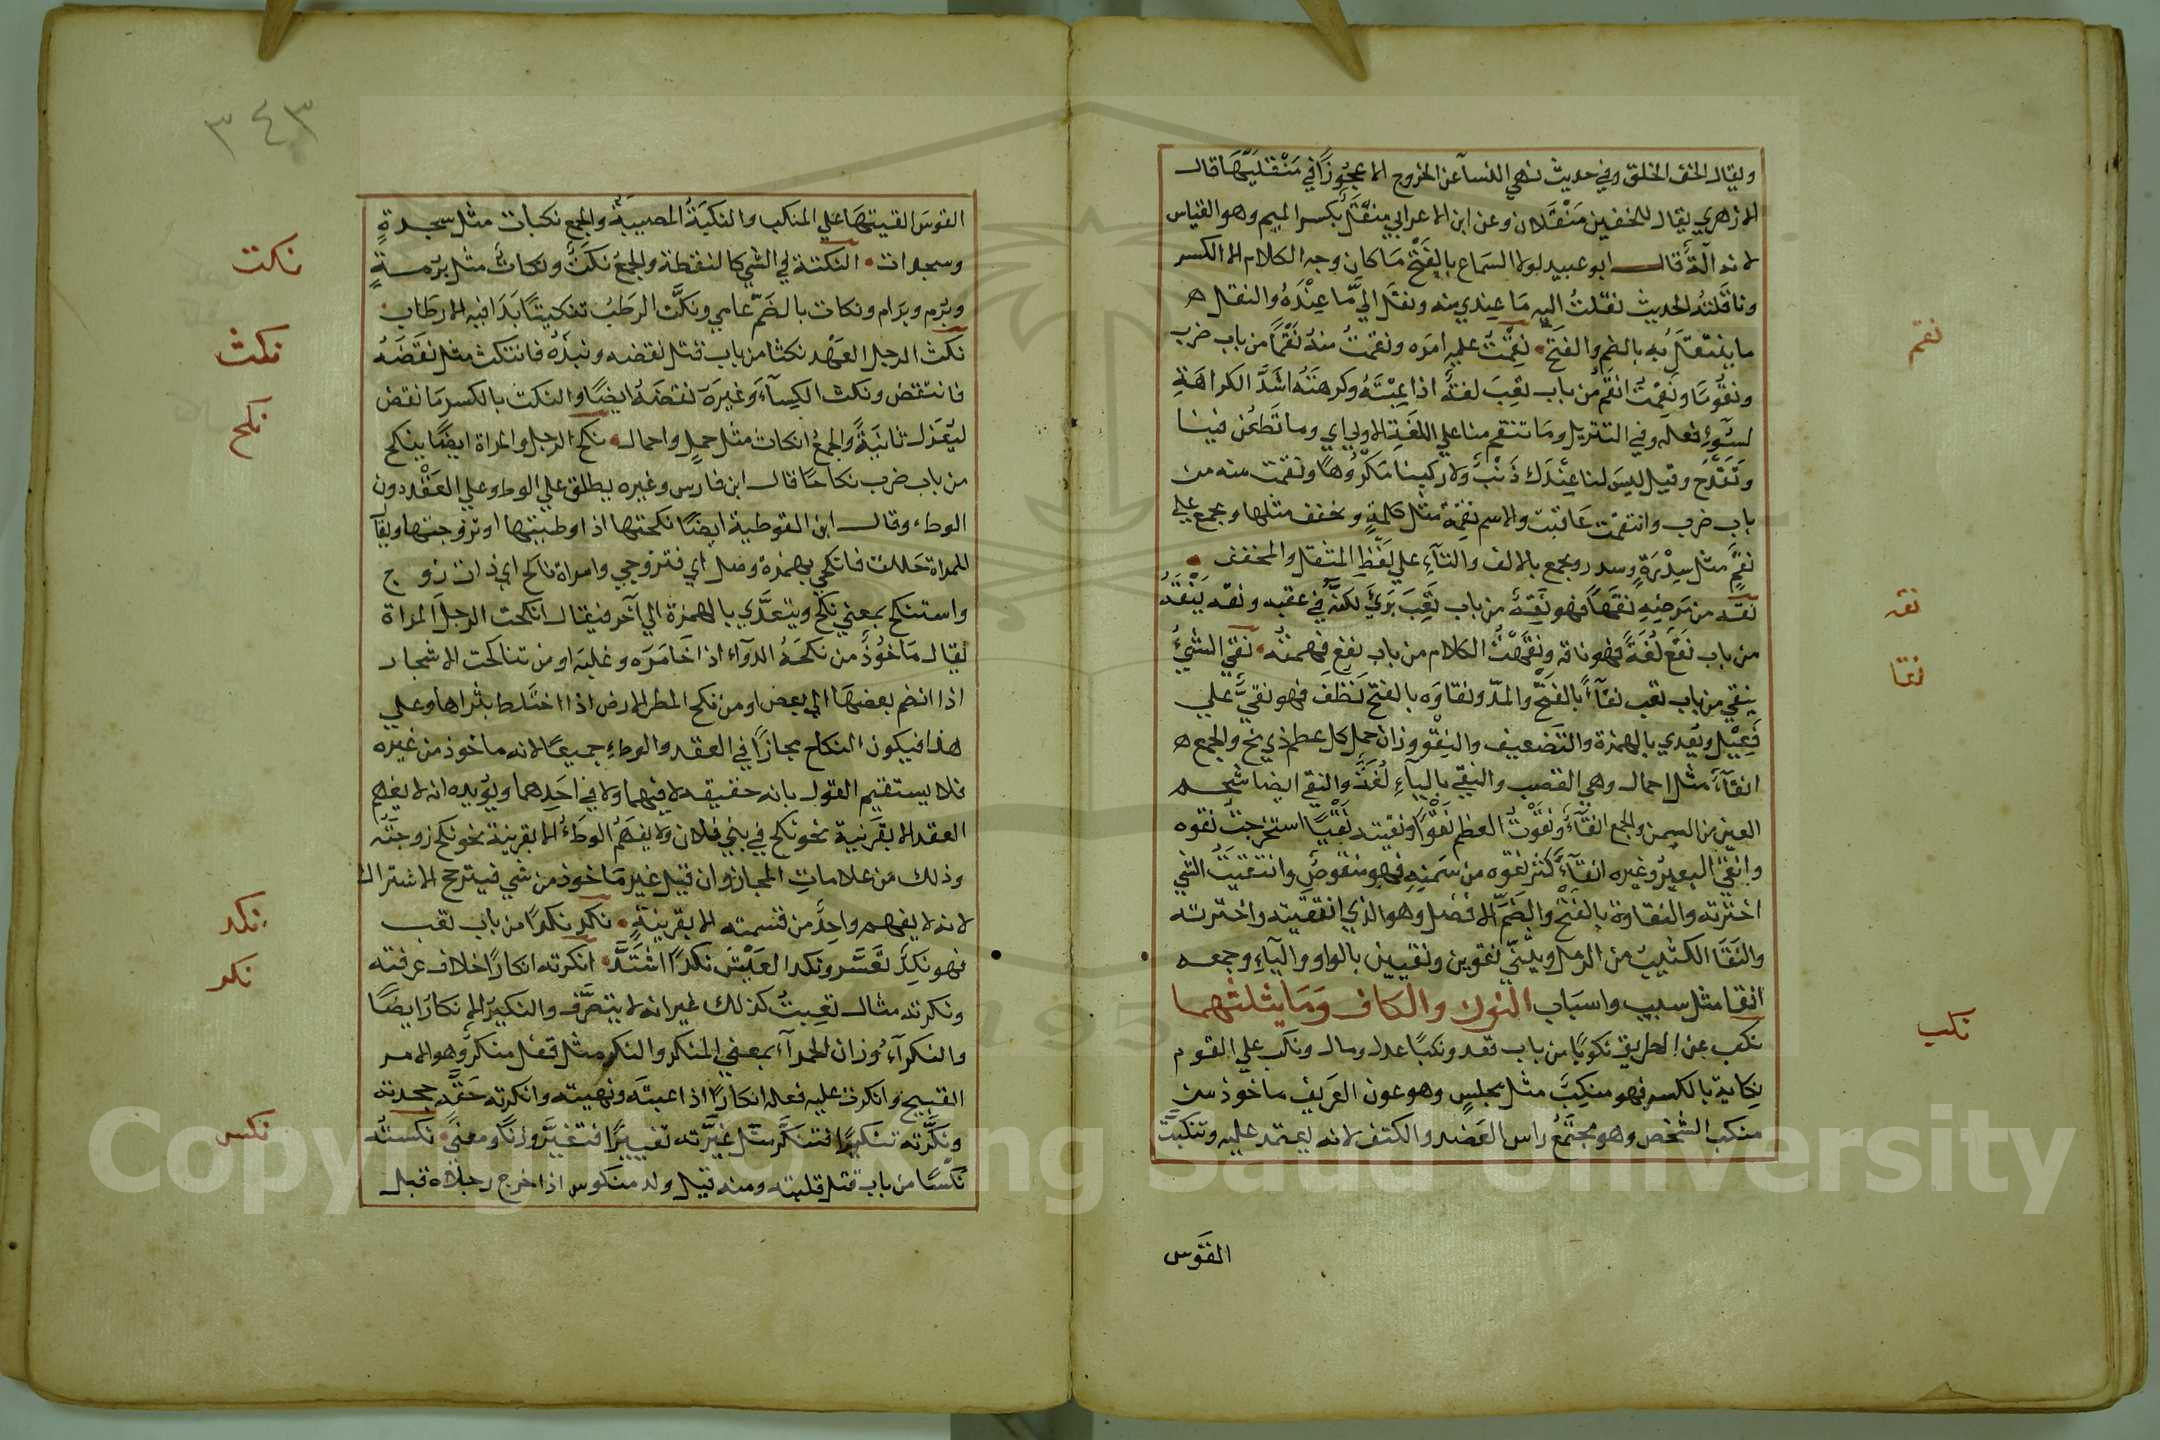 ويقال الخف الخلق وفي حديث نهي النسآ عن الخروج الا عجوزًا في مَنْقَلَيْهَا قال
الازهري يقال للخفين مَنْقَلان وعن ابن الاعرابي مِنْقَلٌ بكسر الميم وهو القياس
لانه آلَةٌ قال ابو عبيد لولا السَماع بالفَتْحِ مَا كان وجه الكلام الا الكسر
وناقَلتُه الحديث نقلتُ اليه مَا عِندي منه ونقَل اليَّ مَا عِنْدَهُ والنقل ه
ما يتنقَل بِه بالضم والفتح نقِمْتُ عليه امرَه ونقمتُ منهُ نَقْمًا من باب ضرب
ونقُومًا ونَقِمْتُ انقَم من باب تعِبَ لغةٌ اذا عِبْتَهُ وكرهتَهُ اشَدَّ الكراهَةِ
لسُوءِ فعله وفي التنزيل ومَا تنقم منا علي اللغَةِ الاولي اي وما تَطعُن فينا
وتَقْدَح وقيل ليسَ لنا عِنْدَك ذَنْبٌ ولا ركبنا مَكرُوهًا ونقمت منه من
باب ضرب وانتقمْت عَاقبت والاسم نقِمَة مثل كلمَةٍ ويخفف مثلها ويجمع علي
نقِمٍ مثل سِدْرَةٍ وسدر ويجمع بالالف والتآءِ علي لَفْظِ المثقل والمخفف
نَقِه من مَرضِهِ نقَهًا فهو نَقِهٌ من باب تعِبَ بَرئَ لكنَّه في عقبه ونقه يَنْقَهُ
من باب نفَعَ لُغَةٌ فهو ناقه ونقَهْتُ الكلام من باب نفع فهمتُه نقي الشيُ
ينقي من باب تعب نقآءً بالفَتْح والمدّ ونقاوَه بالفتح نَظُفَ فهو نقيٌّ علي
فَعِيْل ويُعدي بالهمزة والتَضعيف والنِقْو وزان حِمل كل عظم ذي مخ والجمع ه
انقآءٌ مثل احمال وهي القصب والنقي باليآءِ لُغَةٌ والنقي ايضا شَحم
العين من السِمن والجمع انقَآءٌ ونقَوْتُ العظم نَقْوًا ونقيته نَقْيًا استخرجتُ نقوه
وانقَي البعيرُ وغيره انقآءً كَثر نقوه من سَمنِهِ فهو منقوصٌ وانتقيتُ الشي
اختَرته والنقاوة بالفَتْح والضَمّ الافضل وهو الذي انتقيته واخترته
والنَقَا الكثيبُ من الرمل ويثنّي نقوين ونقيين بالواو واليآءِ وجمعه
انقا مثل سبب واسبَاب النون والكاف وَمَا يثلثهما
نكب عن الطريق نكوبًا من باب قعد ونكبًا عدل ومال ونكب علي القوم
نِكابة بالكسر فهو منكِبٌ مثل مجلسٍ وهو عون العَريف ماخوذ من
منكب الشخص وهو مجتَمَعُ راس العَضد والكتف لانه يعتمد عليه وتنكبْتُ
القَوْس
نقم
نقه
نقا
نكب
٣٤٣
القوسَ القيتهَا علي المنكب والنكبَةُ المصيبَةُ والجمع نكبات مثل سجدةٍ
وسجدات النكتة في الشي كالنقطة والجمعُ نكتٌ ونكاتٌ مثل برْمةٍ
وبُرْم وبرَام ونكات بالضَمّ عامي ونكَّت الرطبُ تنكيتًا بَدَا فيه الارطاب
نكث الرجل العَهْد نكثا من باب قتل نقضه ونبذهُ فانتكث مثل نقضَهُ
فانتقض ونكث الكِسآءَ وَغيرَه نقضَهُ ايضًا والنكث بالكسر مَا نقض
ليغزل ثانيَةً والجمعُ انكاث مثل حمل واحمال نكح الرجل والمراة ايضًا ينكح
من باب ضرب نكاحًا قال ابن فارس وغيره يطلق علي الوط وعلي العَقْد دون
الوطء وقال ابن القوطية ايضًا نكحتها اذا وطيتها او تزوجتها ويقآ
للمراة حَللت فانكحي بهمزة وصل اي فتزوجي وامراة ناكح اي ذات زوج
واستنكح بمعني نكح ويتعدَّي بالهمزة الي آخر فيقال انكحت الرجلَ المراة
يقال مَاخوذٌ من نكحَهُ الدوآء اذا خَامَرَه وغلبَه او من تناكحت الاشجار
اذا انضم بعضهَا الي بعض او من نكح المطر الارض اذا اختَلط بثراها وعلي
هذا فيكون النكاح مجازًا في العقد والوطءِ جميعًا لانه ماخوذ من غيره
فلا يستقيم القول بانه حقيقه لا فيهما ولا في احَدِهما ويُؤيده انه لا يفهم
العقد الا بقَرنية نحو نكح في بني فلان ولا يفهَمُ الوطءُ الا بقرينة نحو نكح زوجتَه
وذلك من علاماتِ المجاز وان قيل غير مَاخوذ من شي فيترجح الاشتراك
لانه لا يفهم واحِدٌ من قسمته الا بقرينةٍ نكد نكدًا من باب تعب
فهو نكِدٌ تعَسَّر ونكد العَيْش نكدًا اشتَدَّ انكرته انكارًا خلاف عرفته
ونكرته مثال تعِبتُ كذلك غير انه لا يتصَرَّف والنكير الانكارُ ايضًا
والنكرآءُ وزان الحمرآء بمعني المنكر والنكر مثل قفل منكرٌ وهو الامر
القبيح وانكرت عليه فعله انكارًا اذا عبتَه ونهيته وانكرته حَقَّه جحدته
ونكَّرته تنكيرًا فتنكَّر مثل غيَّرته تغييرًا فتغيَّر وزنًا ومعنًي نكستُه
نكْسًا من باب قتل قلبته ومنه قيل ولد منكوس اذا خرج رجلاه قبل
نكت
نكث
نكح
نكد
نكر
نكس
Copyright © King Saud University